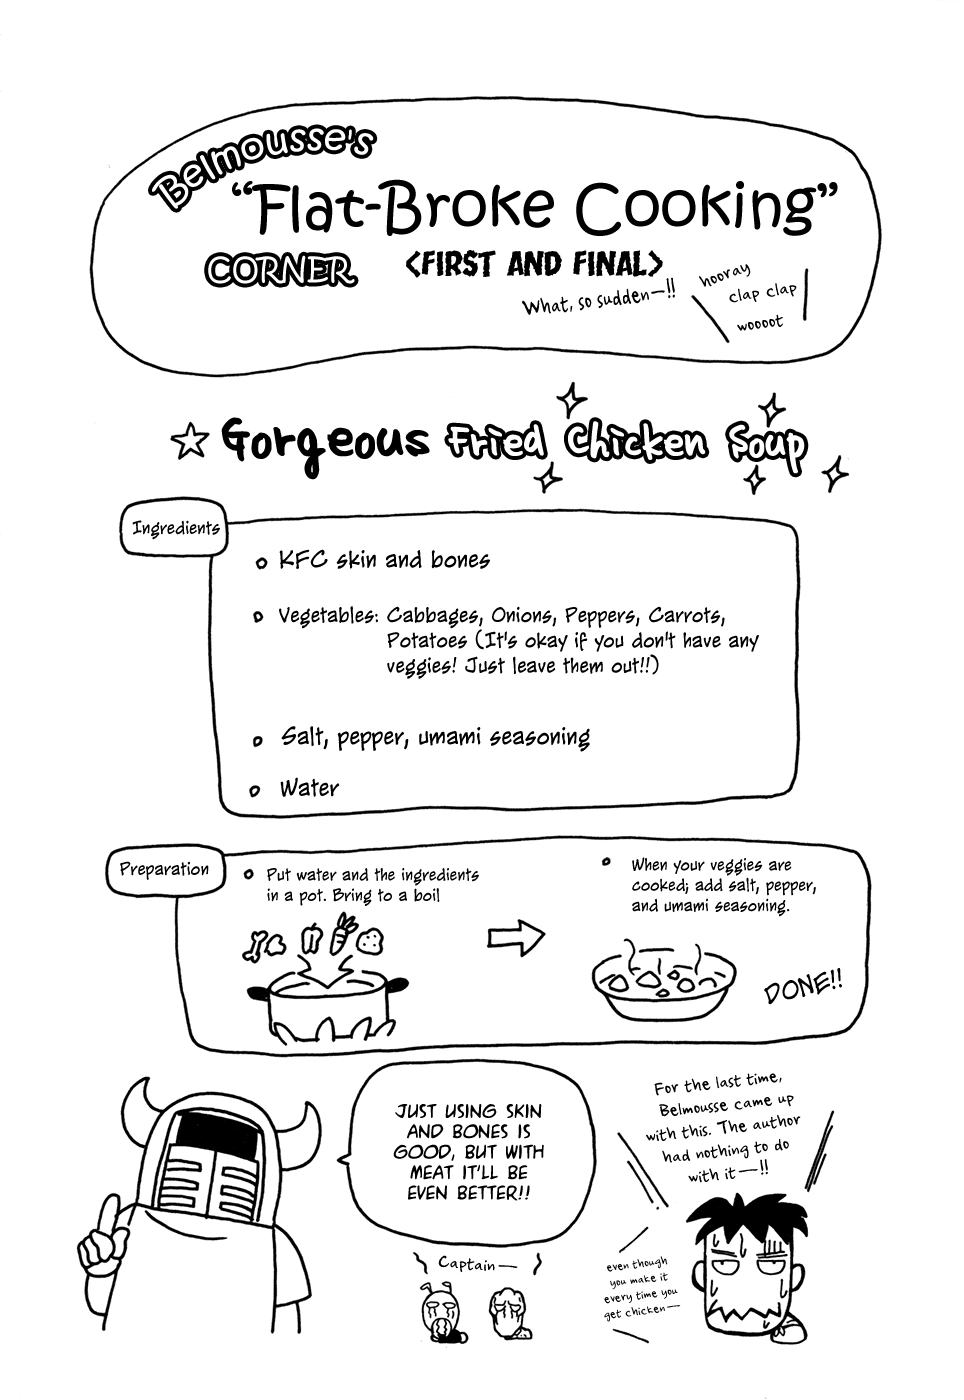 Belmousse's
"Flat-Broke Cooking"
CORNER <FIRST AND FINAL>
What, so sudden—!!
hooray
clap clap
woooot
☆ Gorgeous Fried Chicken Soup
Ingredients
o KFC skin and bones
o Vegetables: Cabbages, Onions, Peppers, Carrots,
Potatoes (It's okay if you don't have any
veggies! Just leave them out!!)
o Salt, pepper, umami seasoning
o Water
Preparation
o Put water and the ingredients
in a pot. Bring to a boil
o When your veggies are
cooked; add salt, pepper,
and umami seasoning.
DONE!!
JUST USING SKIN
AND BONES IS
GOOD, BUT WITH
MEAT IT'LL BE
EVEN BETTER!!
Captain—
For the last time,
Belmousse came up
with this. The author
had nothing to do
with it—!!
even though
you make it
every time you
get chicken—